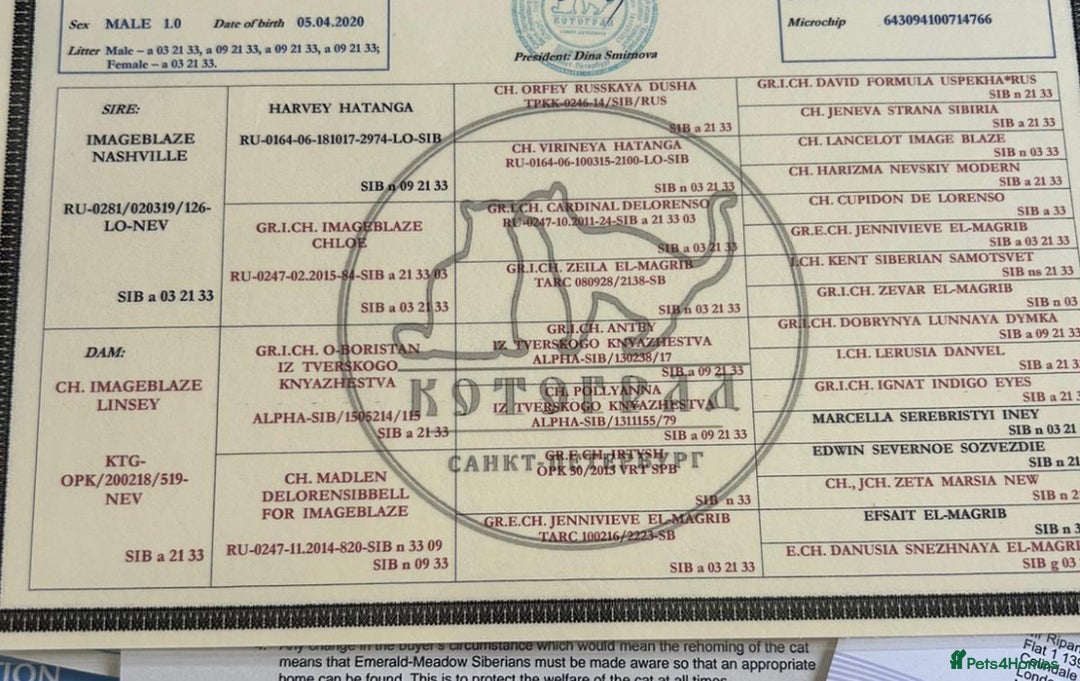 Sex MALE 1.0 Date of birth 05.04.2020
Litter Male – a 03 21 33, a 09 21 33, a 09 21 33, a 09 21 33;
Female – a 03 21 33.
КОТОГРАД
President: Dina Smirnova
Microchip 643094100714766
SIRE:
IMAGEBLAZE
NASHVILLE
RU-0281/020319/126-
LO-NEV
SIB a 03 21 33
DAM:
CH. IMAGEBLAZE
LINSEY
KTG-
OPK/200218/519-
NEV
SIB a 21 33
HARVEY HATANGA
RU-0164-06-181017-2974-LO-SIB
SIB n 09 21 33
GR.I.CH. IMAGEBLAZE
CHLOE
RU-0247-02.2015-84-SIB a 21 33 03
SIB a 03 21 33
GR.I.CH. O-BORISTAN
IZ TVERSKOGO
KNYAZHESTVA
ALPHA-SIB/1505214/115
SIB a 21 33
CH. MADLEN
DELORENSIBBELL
FOR IMAGEBLAZE
RU-0247-11.2014-820-SIB n 33 09
SIB n 09 33
CH. ORFEY RUSSKAYA DUSHA
TPKK-0246-14/SIB/RUS
SIB a 21 33
CH. VIRINEYA HATANGA
RU-0164-06-100315-2100-LO-SIB
SIB n 03 21 33
GR.I.CH. CARDINAL DELORENSO
RU-0247-10.2011-24-SIB a 21 33 03
SIB a 03 21 33
GR.I.CH. ZEILA EL-MAGRIB
TARC 080928/2138-SB
SIB n 03 21 33
GR.I.CH. ANTEY
IZ TVERSKOGO KNYAZHESTVA
ALPHA-SIB/130238/17
SIB a 09 21 33
CH. POLLYANNA
IZ TVERSKOGO KNYAZHESTVA
ALPHA-SIB/1311155/79
SIB a 09 21 33
GR.E.CH. IRTYSH
OPK 50/2013 VRT SPB
SIB n 33
GR.E.CH. JENNIVIEVE EL-MAGRIB
TARC 100216/2223-SB
SIB a 03 21 33
GR.I.CH. DAVID FORMULA USPEKHA*RUS
SIB n 21 33
CH. JENEVA STRANA SIBIRIA
SIB a 21 33
CH. LANCELOT IMAGE BLAZE
SIB n 03 33
CH. HARIZMA NEVSKIY MODERN
SIB a 21 33
CH. CUPIDON DE LORENSO
SIB a 33
GR.E.CH. JENNIVIEVE EL-MAGRIB
SIB a 03 21 33
I.CH. KENT SIBERIAN SAMOTSVET
SIB ns 21 33
GR.I.CH. ZEVAR EL-MAGRIB
SIB n 03
GR.I.CH. DOBRYNYA LUNNAYA DYMKA
SIB a 09 21 33
I.CH. LERUSIA DANVEL
SIB a 21 3
GR.I.CH. IGNAT INDIGO EYES
SIB a 21
MARCELLA SEREBRISTYI INEY
SIB n 03 21
EDWIN SEVERNOE SOZVEZDIE
SIB n 21
CH., JCH. ZETA MARSIA NEW
SIB n 2
EFSAIT EL-MAGRIB
SIB n 3
E.CH. DANUSIA SNEZHNAYA EL-MAGRI
SIB g 03
КОТОГРАД
САНКТ-ПЕТЕРБУРГ
Any change in the buyer's circumstance which would mean the rehoming of the cat
means that Emerald-Meadow Siberians must be made aware so that an appropriate
home can be found. This is to protect the welfare of the cat at all times.
TION
Ripar
Flat 1 13
Colindale
Londo
Pets4Homes